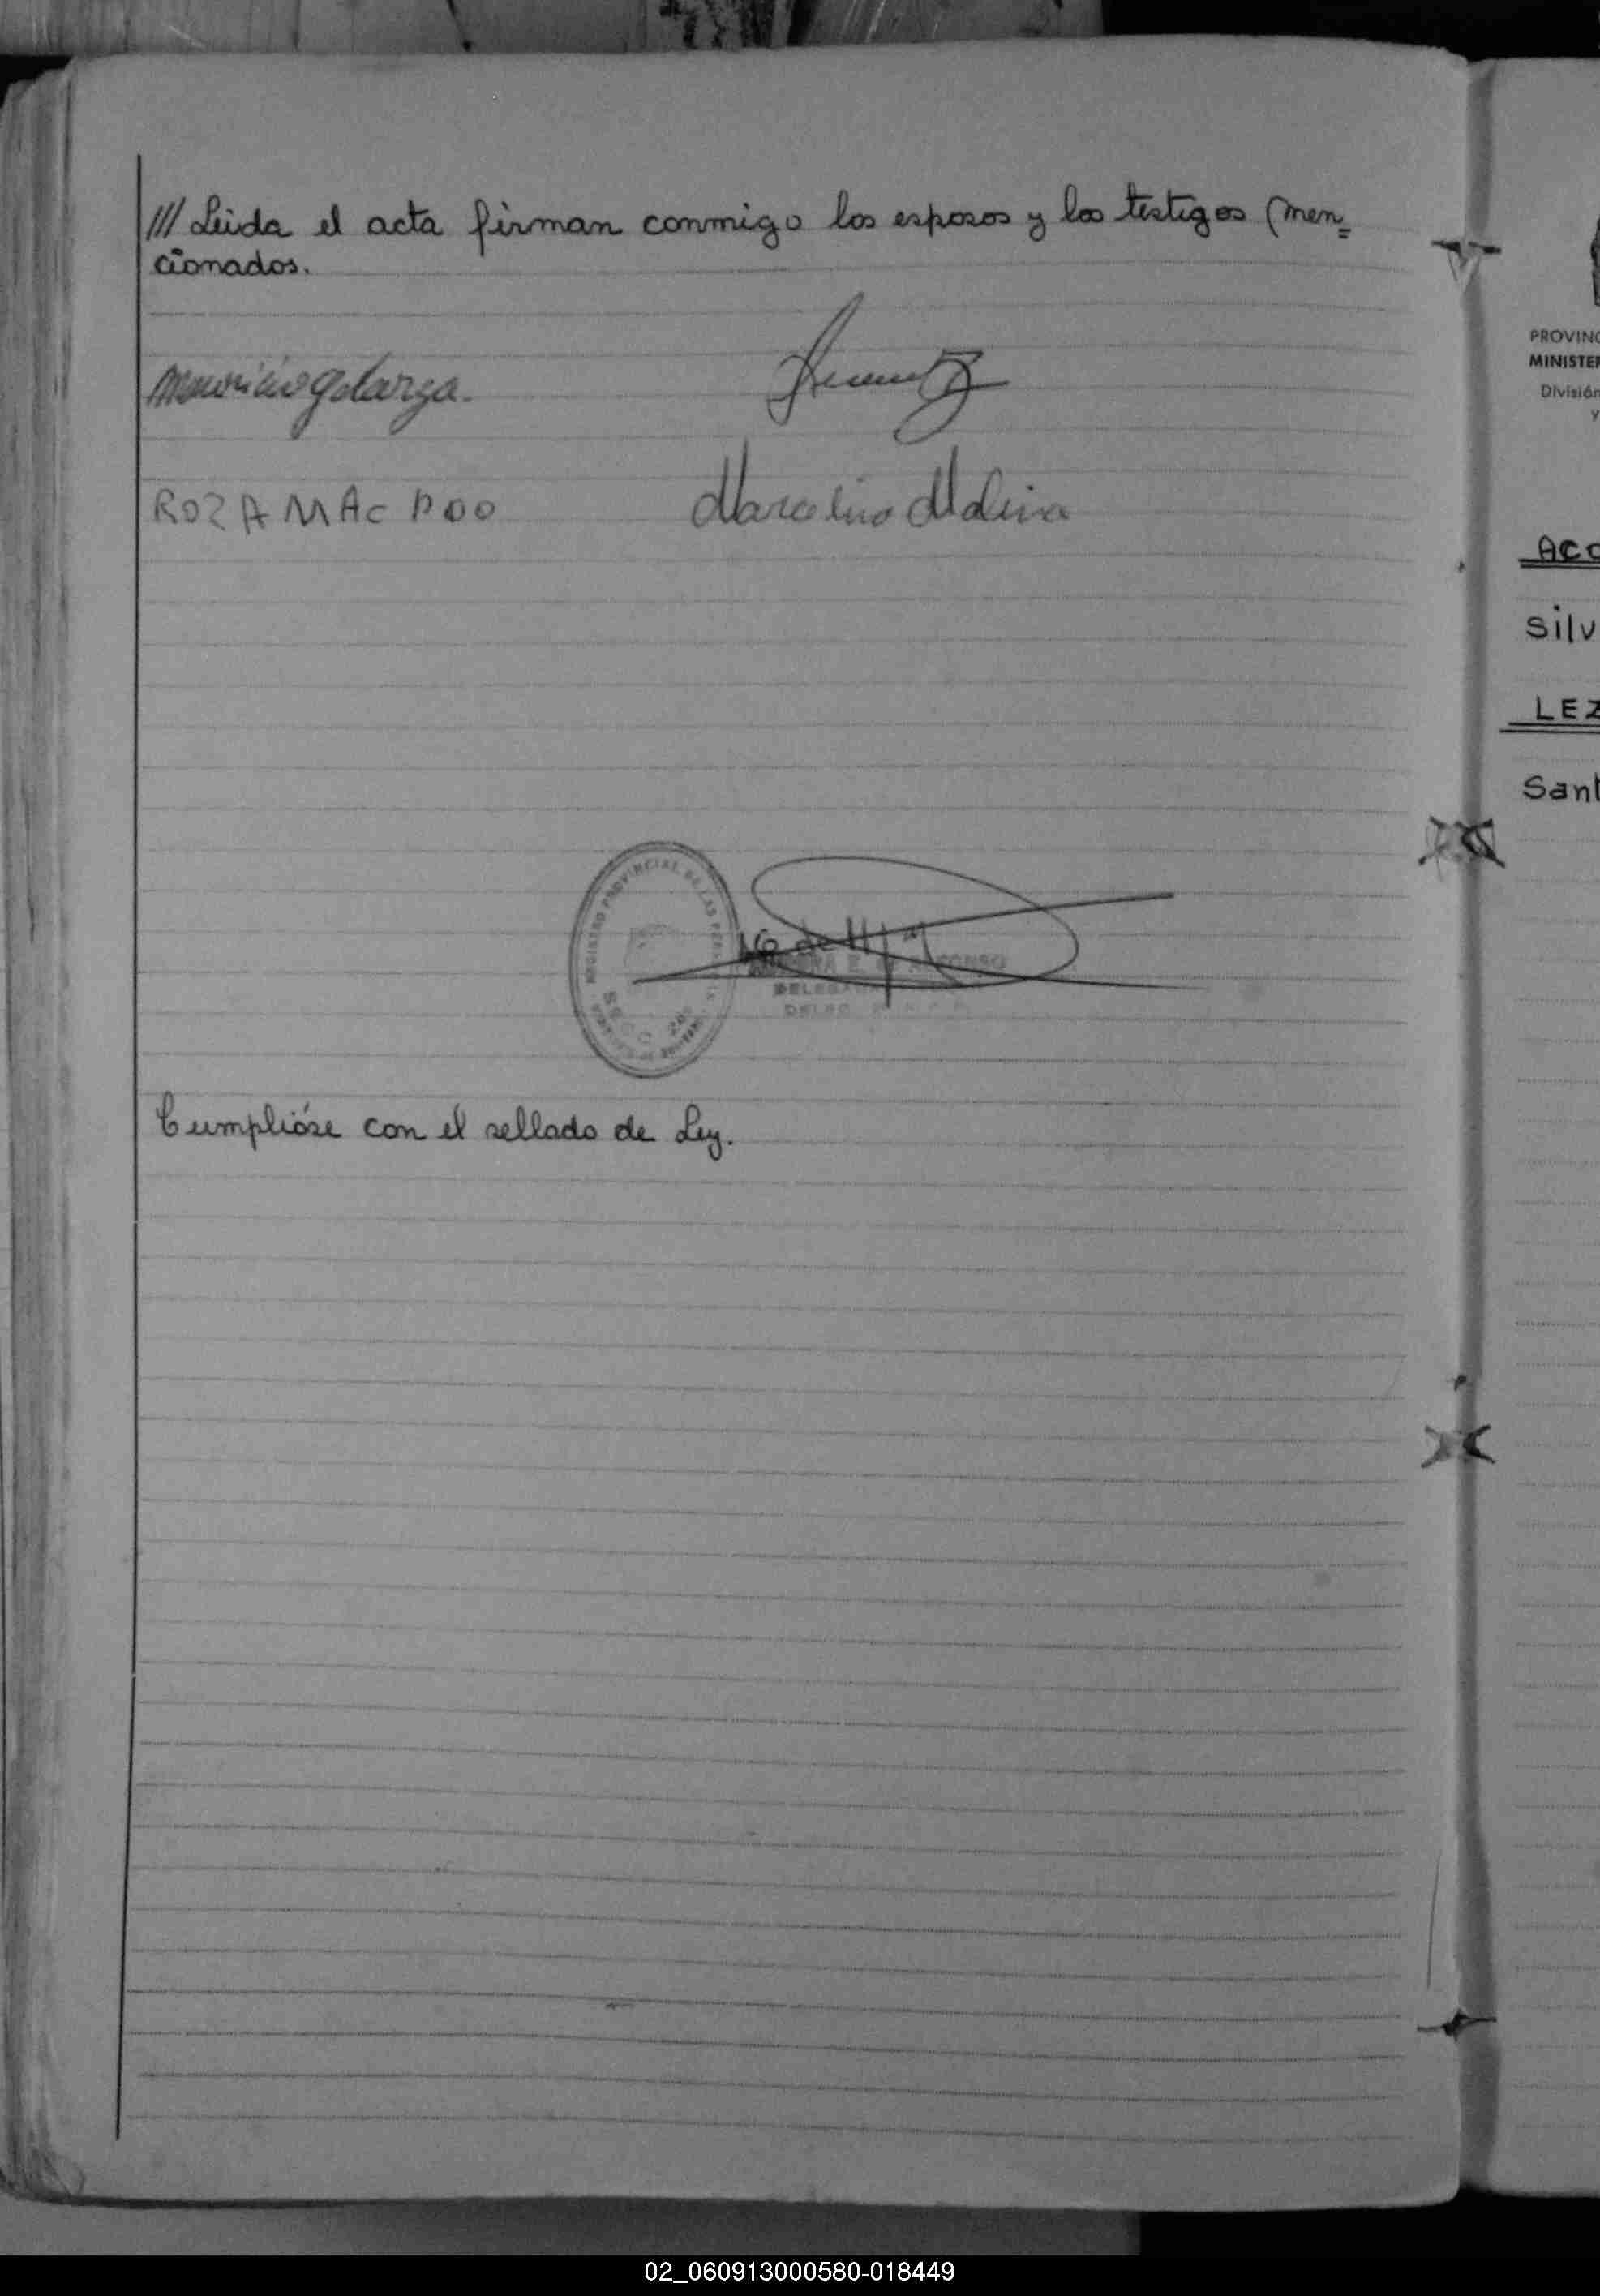 /// Leida el acta firman conmigo los esposos y los testigos men=
cionados.
Mauricio Galarza.
ROZA MAC DOO
Marcelino Molina
REGISTRO PROVINCIAL DE LAS PERSONAS
E. de ALFONSO
DELEGADA
Cumplióse con el sellado de Ley.
PROVINC
MINISTER
División
y
ACO
Silv
LEZ
Sant
02_060913000580-018449